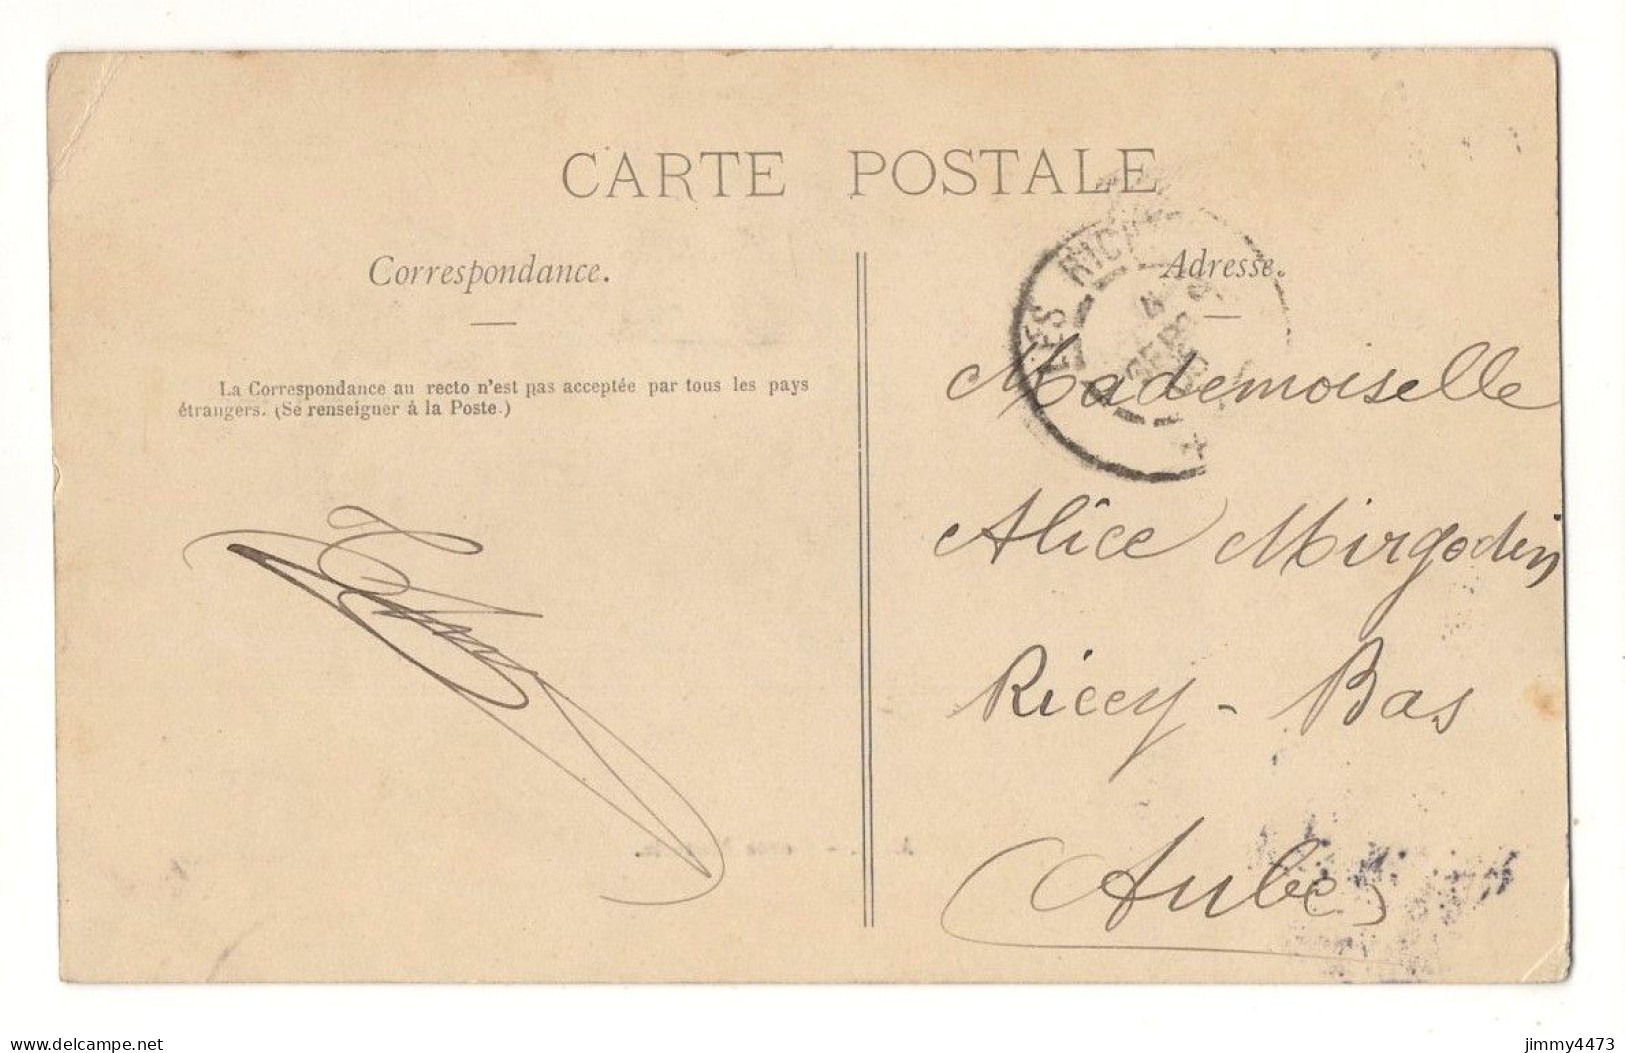 CARTE POSTALE
Correspondance.
La Correspondance au recto n'est pas acceptée par tous les pays
étrangers. (Se renseigner à la Poste.)
Adresse.
LES RICE
Mademoiselle
Alice Mirgodin
Ricey - Bas
Aube
delcampe.net
jimmy4473